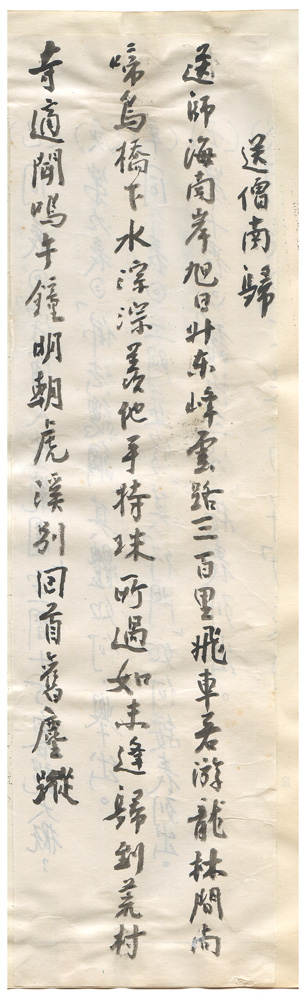 送僧南歸
送師海南岸旭日升东峰雲路三百里飛車若游龍林間尚
啼鳥橋下水淙淙羨他手持珠所過如未逢歸到荒村
寺適聞鳴午鐘明朝虎溪別回首舊塵蹤